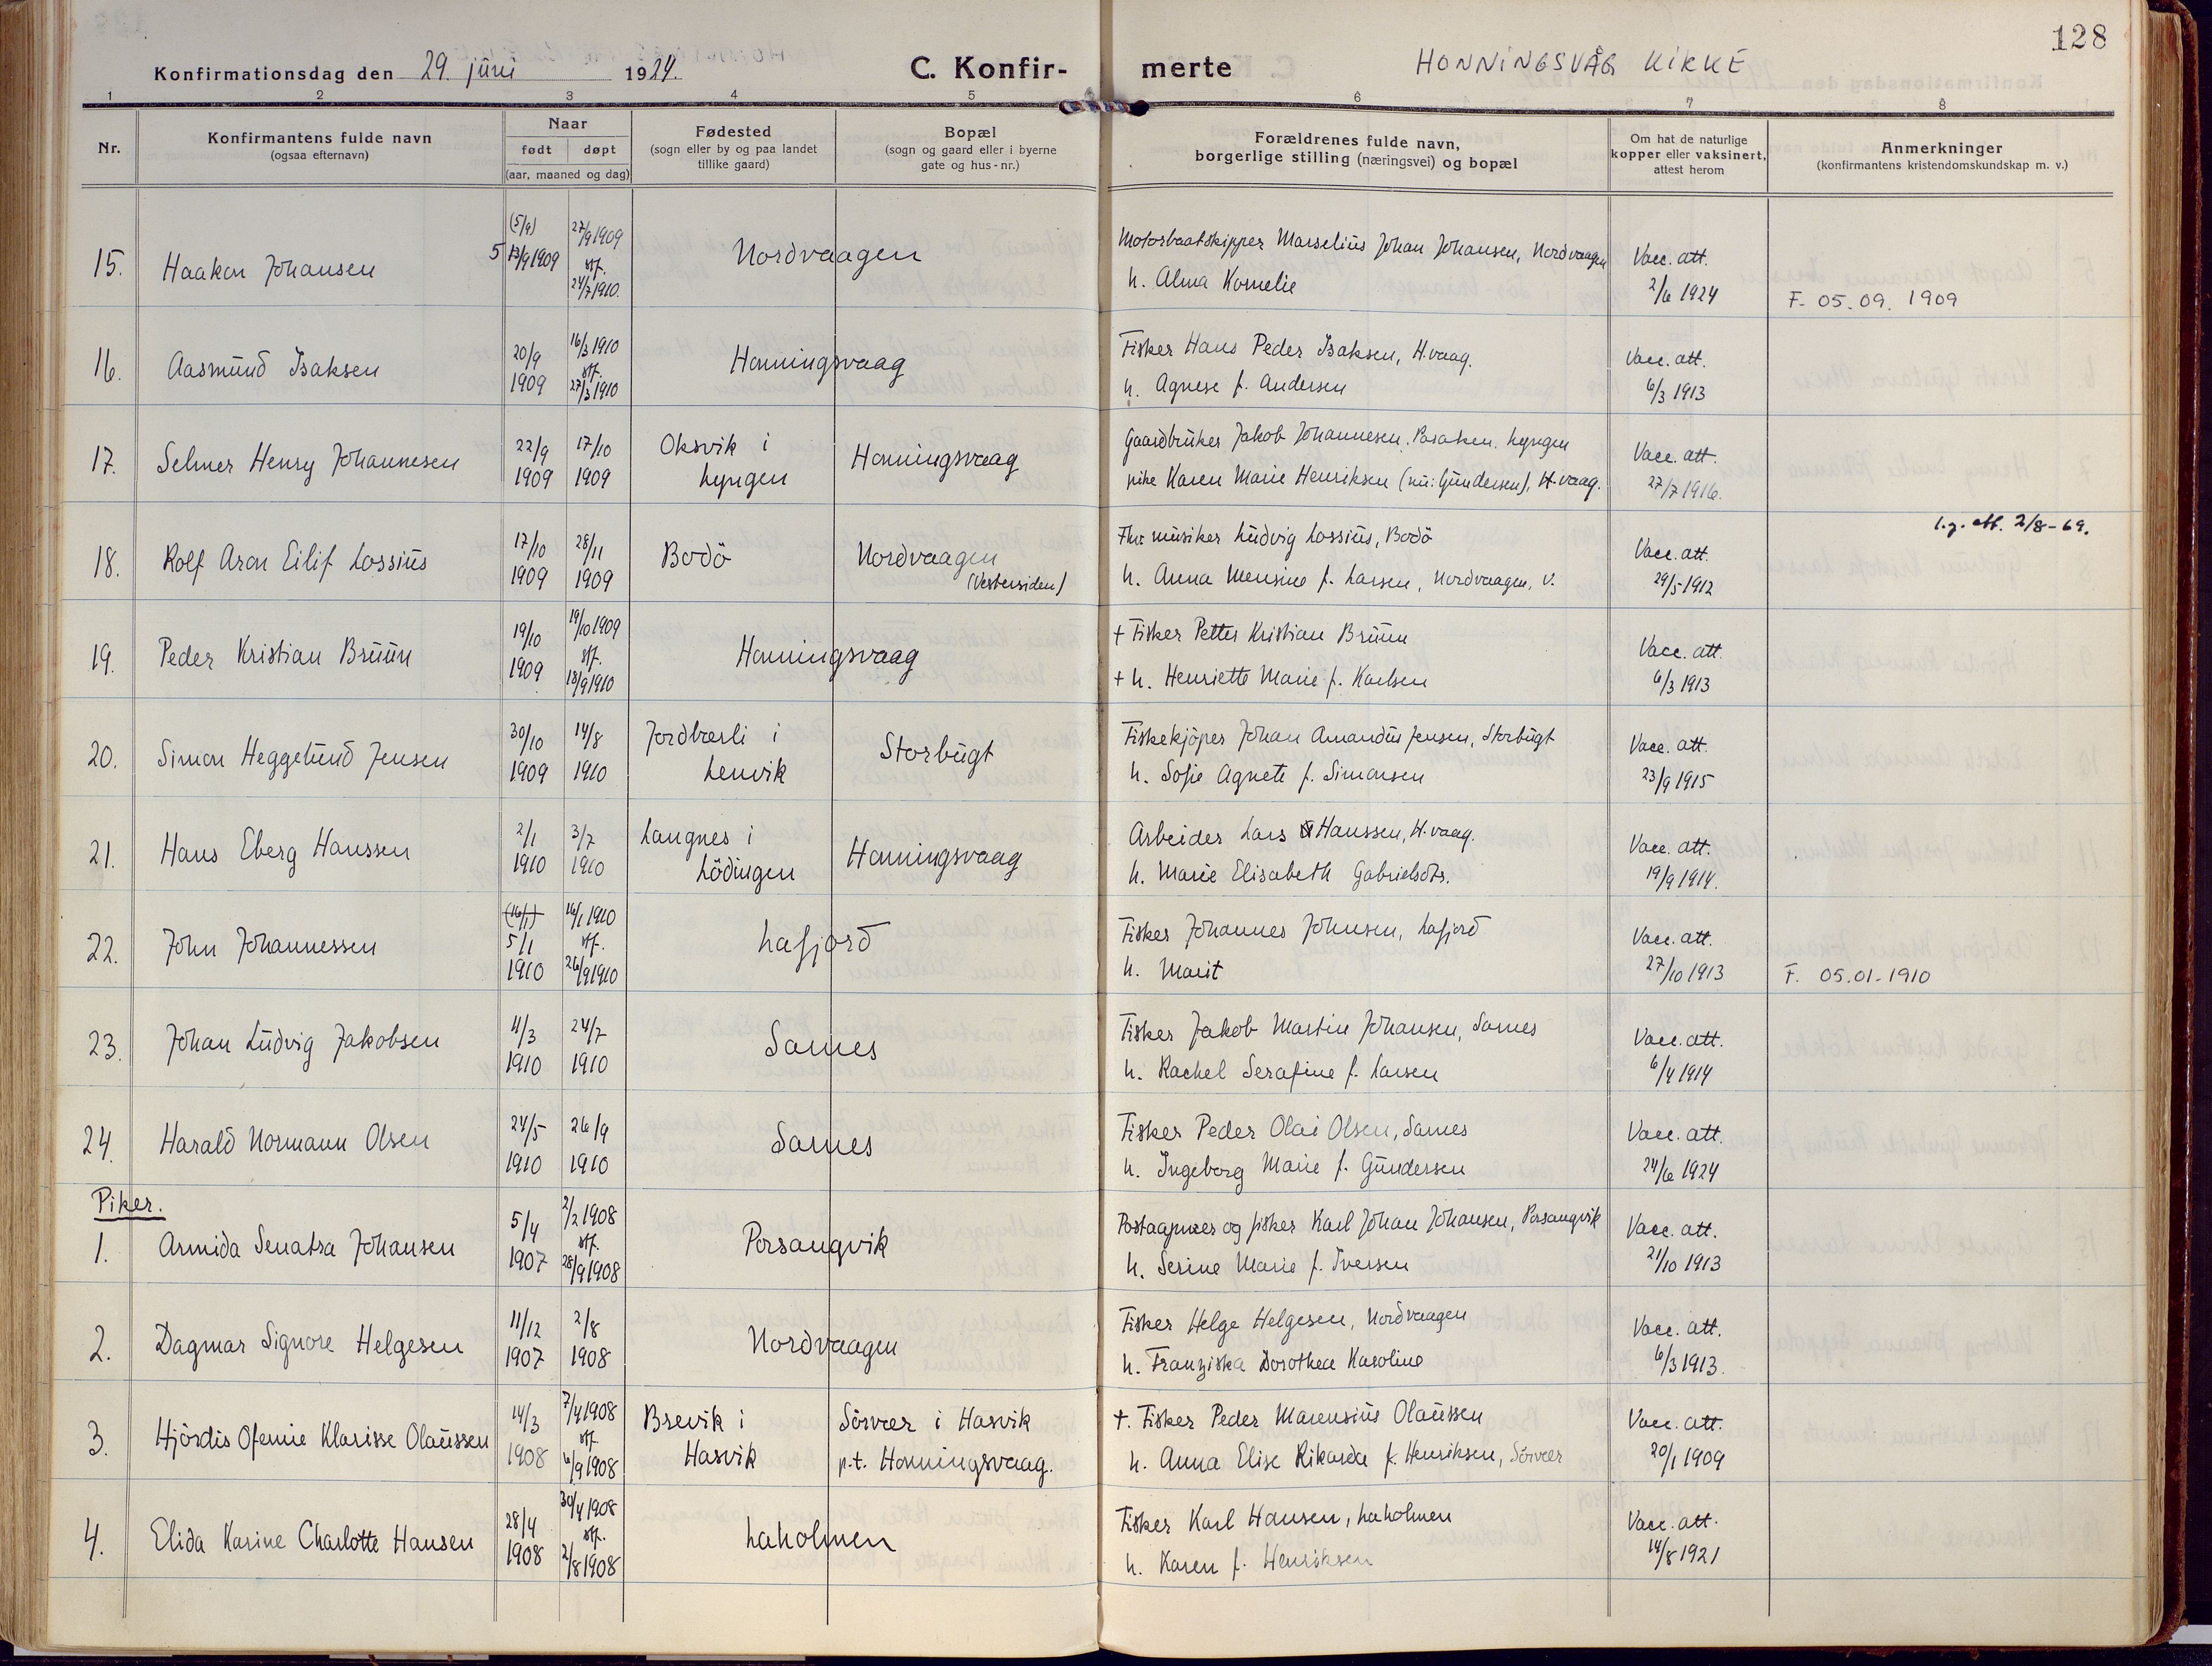 128
Konfirmationsdag den 29. juni 1924. C. Konfir- merte HONNINGSVÅG KIKKE
1 2 3 4 5 6 7 8
Nr.
Konfirmantens fulde navn
(ogsaa efternavn)
Naar
født døpt
(aar, maaned og dag)
Fødested
(sogn eller by og paa landet
tillike gaard)
Bopæl
(sogn og gaard eller i byerne
gate og hus-nr.)
Forældrenes fulde navn,
borgerlige stilling (næringsvei) og bopæl
Om hat de naturlige
kopper eller vaksinert,
attest herom
Anmerkninger
(konfirmantens kristendomskundskap m. v.)
15. Haakon Johansen
(5/9)
5 13/9 1909
27/9 1909
stf.
24/7 1910.
Nordvaagen
Motorbaatskipper Marselius Johan Johansen, Nordvaagen
h. Alma Kornelie
Vacc. att.
2/6 1924
F. 05.09. 1909
16. Aasmund Isaksen
20/9
1909
16/3 1910
stf.
27/3 1910
Honningsvaag
Fisker Hans Peder Isaksen, H.vaag.
h. Agnese f. Andersen
Vacc. att.
6/3 1913
17. Selmer Henry Johannesen
22/9
1909
17/10
1909
Oksvik i
Lyngen
Honningsvaag
Gaardbruker Jakob Johannesen, Lyngen
pike Karen Marie Henriksen (nu: Gundersen), H.vaag.
Vacc. att.
27/7 1916.
18. Rolf Aron Eilif Lossius
17/10
1909
28/11
1909
Bodö
Nordvaagen
(Vestersiden)
Fhv. musiker Ludvig Lossius, Bodö
h. Anna Mensine f. Larsen, Nordvaagen, V.
Vacc. att.
29/5 1912
l.g. att. 2/8-69.
19. Peder Kristian Bruun
19/10
1909
19/10 1909
stf.
18/9 1910
Honningsvaag
+ Fisker Petter Kristian Bruun
+ h. Henriette Marie f. Karlsen
Vacc. att.
6/3 1913
20. Simon Heggelund Jensen
30/10
1909
14/8
1910
Jordbærli i
Lenvik
Storbugt
Fiskekjöper Johan Amandus Jensen, Storbugt
h. Sofie Agnete f. Simonsen
Vacc. att.
23/9 1915
21. Hans Eberg Hanssen
2/1
1910
3/7
1910
Langnes i
Lödingen
Honningsvaag
Arbeider Lars Hanssen, H.vaag.
h. Marie Elisabeth Gabrielsdtr.
Vacc. att.
19/9 1914.
22. John Johannessen
(16/1)
5/1
1910
16/1 1910
stf.
26/9 1910
Lafjord
Fisker Johannes Johnsen, Lafjord
h. Marit
Vacc. att.
27/10 1913
F. 05.01-1910
23. Johan Ludvig Jakobsen
4/3
1910
24/7
1910
Sarnes
Fisker Jakob Martin Johansen, Sarnes
h. Rachel Serafine f. Larsen
Vacc. att.
6/4 1914
24. Harald Normann Olsen
24/5
1910
26/9
1910
Sarnes
Fisker Peder Olai Olsen, Sarnes
h. Ingeborg Marie f. Gundersen
Vacc. att.
24/6 1924
Piker.
1. Armida Senatra Johansen
5/4
1907
2/2 1908
stf.
28/9 1908
Porsangvik
Postaapner og fisker Karl Johan Johansen, Porsangvik
h. Serine Marie f. Iversen
Vacc. att.
21/10 1913
2. Dagmar Signore Helgesen
11/12
1907
2/8
1908
Nordvaagen
Fisker Helge Helgesen, Nordvaagen
h. Franziska Dorothea Karoline
Vacc. att.
6/3 1913.
3. Hjördis Ofemie Klarisse Olaussen
14/3
1908
7/4 1908
stf
6/9 1908
Brevik i
Hasvik
Sörvær i Hasvik
p.t. Honningsvaag.
+. Fisker Peder Marensius Olaussen
h. Anna Elise Rikarda f. Henriksen, Sörvær
Vacc. att.
20/1 1909
4. Elida Karine Charlotte Hansen
28/4
1908
30/4 1908
stf.
2/8 1908
Laholmen
Fisker Karl Hansen, Laholmen
h. Karen f. Henriksen
Vacc. att.
14/8 1921